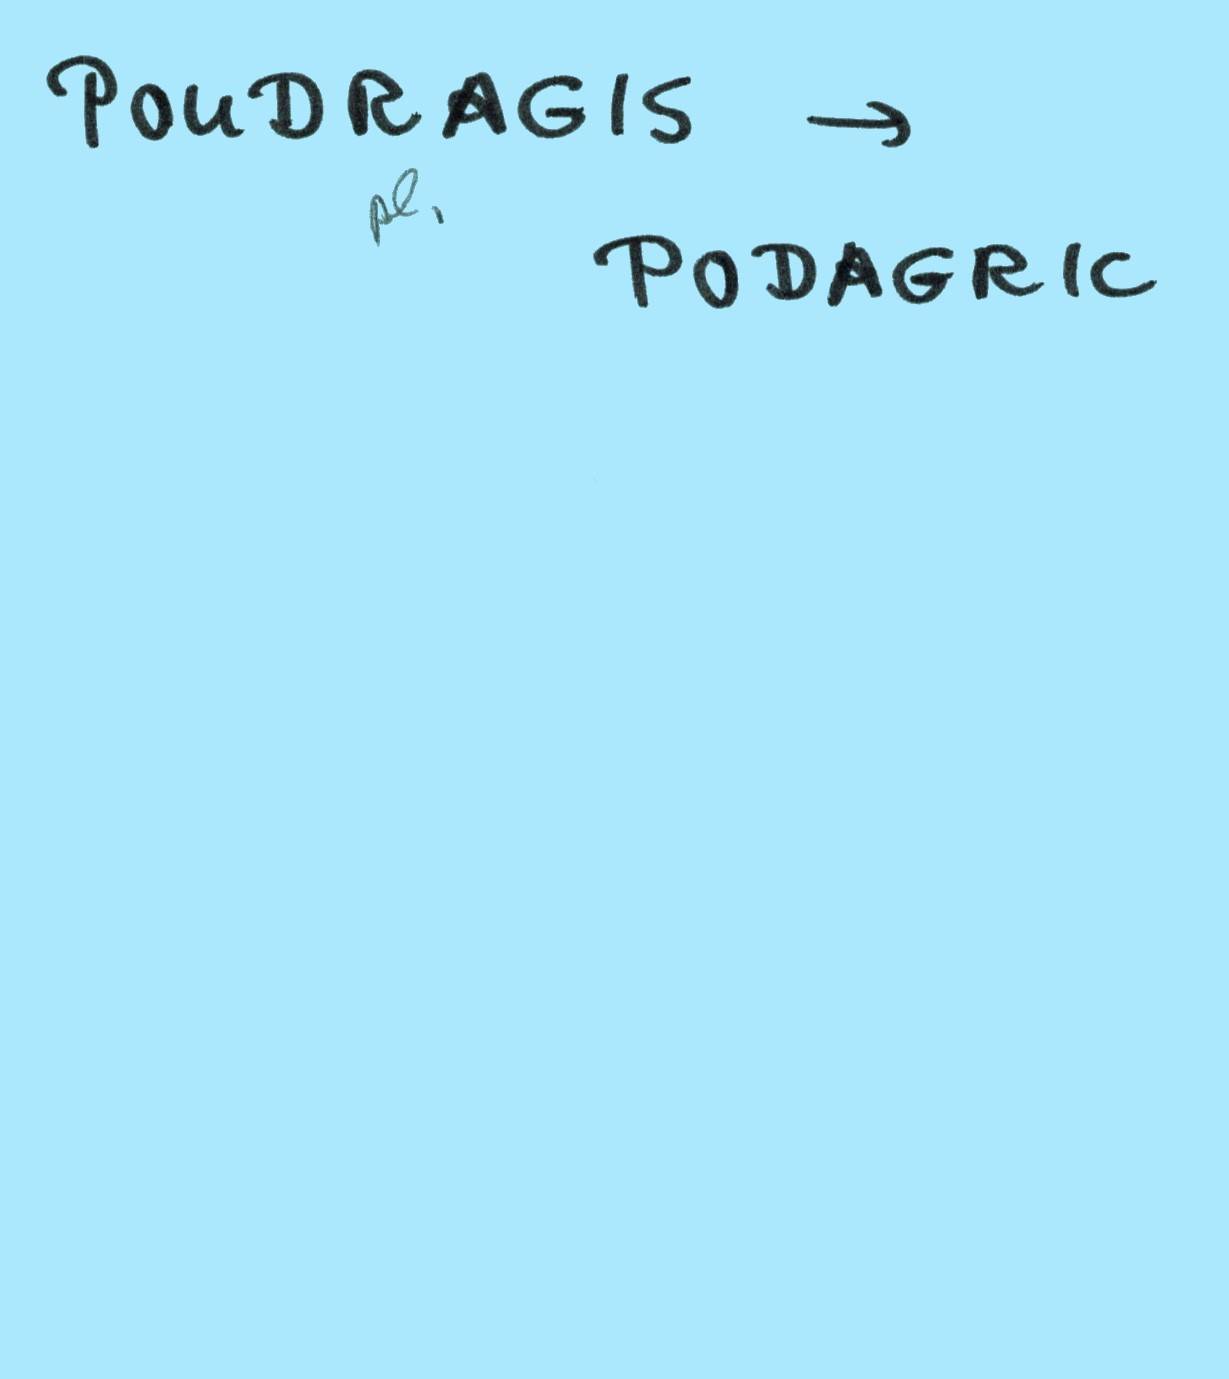 POUDRAGIS →
pl.
PODAGRIC